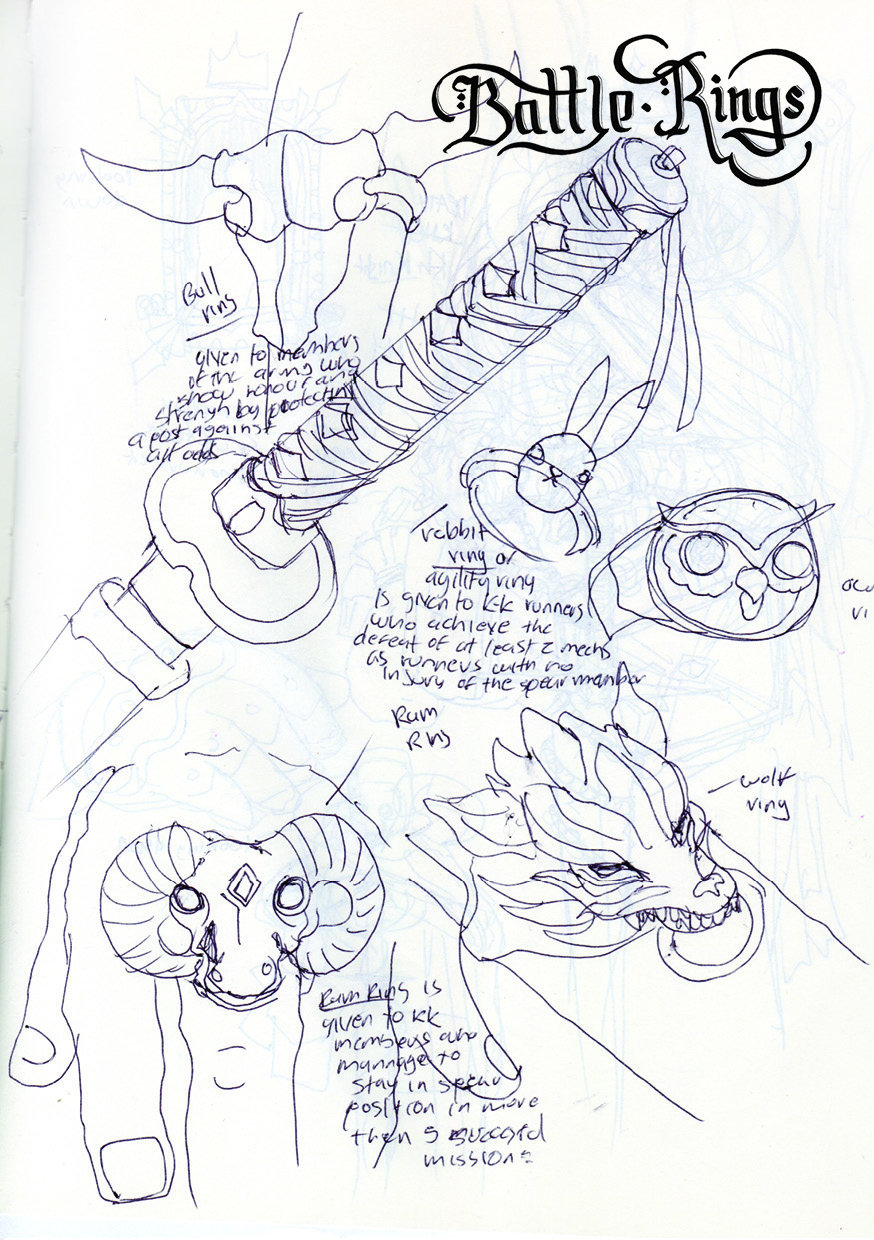 Battle · Rings
Bull
ring
given to members
of the army who
show honour and
strengh by protecting
a post against
all odds
rabbit
ring or
agility ring
is given to KK runners
who achieve the
defeat of at least 2 mechs
as runners with no
injury of the spear member
Ram
Ring
wolf
ring
Ram Ring is
given to KK
members who
mannage to
stay in spear
position in more
then 5
missions